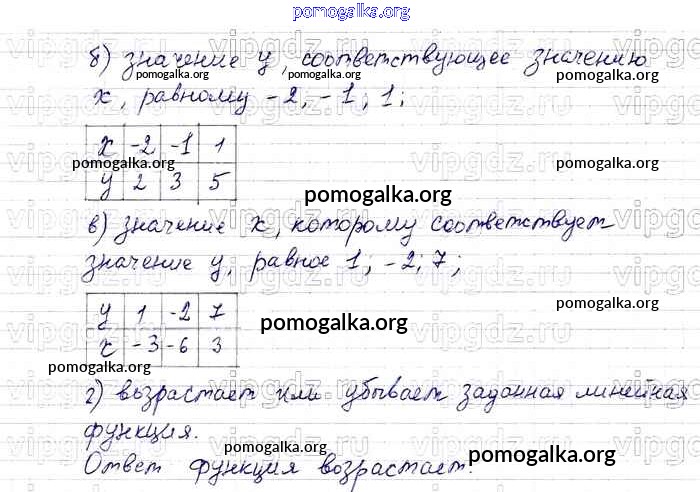 pomogalka.org
б) значение у, соответствующее значению
х, равному -2, -1; 1;
х -2 -1 1
у 2 3 5
в) значение х, которому соответствует
значение у, равное 1; -2; 7;
у 1 -2 7
х -3 -6 3
г) возрастает или убывает заданная линейная
функция.
Ответ функция возрастает.